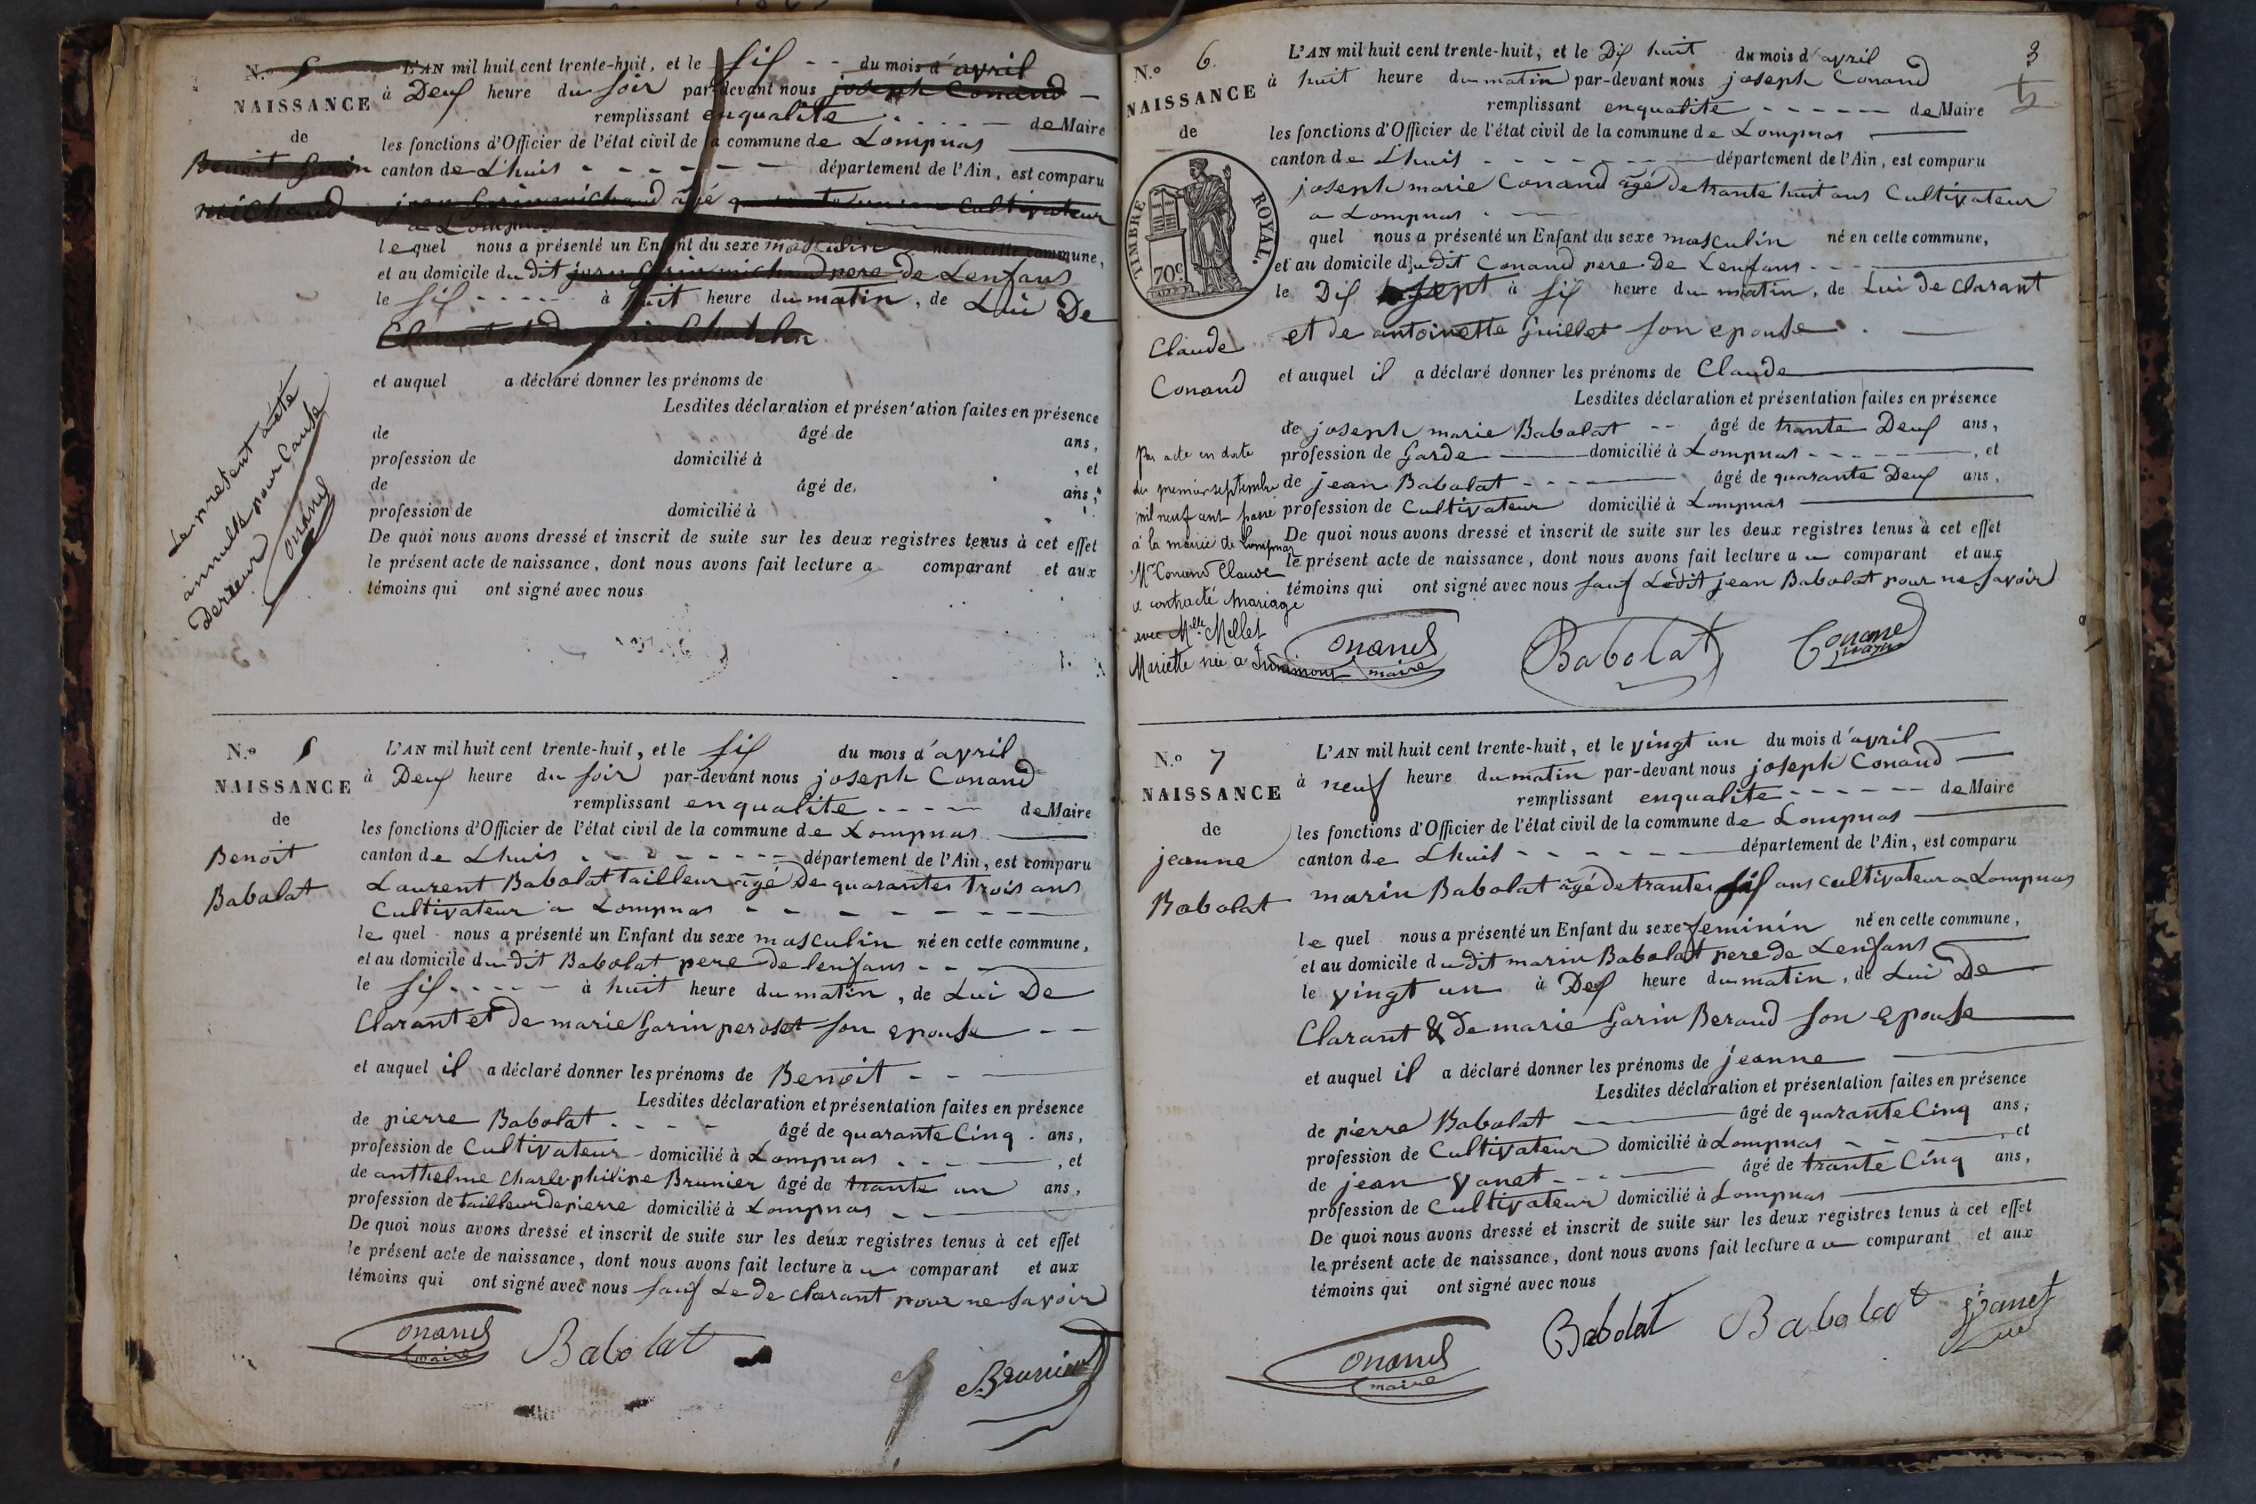 N.o 5
NAISSANCE
de
Benoit Garin
michaud
L'AN mil huit cent trente-huit, et le six du mois d'avril
à Deux heure du soir par-devant nous joseph Conand
remplissant enqualité de Maire
les fonctions d'Officier de l'état civil de la commune de Lompnas
canton de Lhuis département de l'Ain, est comparu
jean Garin michaud âgé Cultivateur
a Lompnas
lequel nous a présenté un Enfant du sexe masculin né en cette commune,
et au domicile du dit jean Garin michaud pere de Lenfans
le six à huit heure du matin, de Lui De
Clarant et de
et auquel a déclaré donner les prénoms de
Lesdites déclaration et présen'ation faites en présence
de âgé de ans,
profession de domicilié à , et
de âgé de ans,
profession de domicilié à
De quoi nous avons dressé et inscrit de suite sur les deux registres tenus à cet effet
le présent acte de naissance, dont nous avons fait lecture a comparant et aux
témoins qui ont signé avec nous
Le present a été
annullé pour Cause
Derreur
Onand
N.o 5
NAISSANCE
de
Benoit
Babolat
L'AN mil huit cent trente-huit, et le six du mois d'avril
à Deux heure du soir par-devant nous joseph Conand
remplissant enqualité de Maire
les fonctions d'Officier de l'état civil de la commune de Lompnas
canton de Lhuis département de l'Ain, est comparu
Laurent Babolat tailleur âgé De quarantes trois ans
Cultivateur a Lompnas
le quel nous a présenté un Enfant du sexe masculin né en cette commune,
et au domicile du dit Babolat pere De lenfans
le six à huit heure du matin, de Lui De
Clarant et De marie Garin peroset son epouse
et auquel il a déclaré donner les prénoms de Benoit
Lesdites déclaration et présentation faites en présence
de pierre Babolat âgé de quarante Cinq ans,
profession de Cultivateur domicilié à Lompnas , et
de anthelme Charle philipe Brunier âgé de trante un ans,
profession de tailleur de pierre domicilié à Lompnas
De quoi nous avons dressé et inscrit de suite sur les deux registres tenus à cet effet
le présent acte de naissance, dont nous avons fait lecture a u comparant et aux
témoins qui ont signé avec nous sauf Le de clarant pour ne savoir
Onand
maire
Babolat
Brunier
3
N.o 6.
NAISSANCE
de
TIMBRE ROYAL.
70c
Claude
Conand
L'AN mil huit cent trente-huit, et le Dix huit du mois d'avril
à huit heure du matin par-devant nous joseph Conand
remplissant enqualité de Maire
les fonctions d'Officier de l'état civil de la commune de Lompnas
canton de Lhuis département de l'Ain, est comparu
joseph marie Conand âgé de trante huit ans Cultivateur
a Lompnas
quel nous a présenté un Enfant du sexe masculin né en cette commune,
et au domicile du dit Conand pere De Lenfans
le Dix sept à six heure du matin, de Lui de clarant
et de antoinette juillet son epouse
et auquel il a déclaré donner les prénoms de Claude
Lesdites déclaration et présentation faites en présence
de joseph marie Babolat âgé de trante Deux ans,
profession de Garde domicilié à Lompnas , et
de jean Babolat âgé de quarante Deux ans,
profession de Cultivateur domicilié à Lompnas
De quoi nous avons dressé et inscrit de suite sur les deux registres tenus à cet effet
le présent acte de naissance, dont nous avons fait lecture a u comparant et aux
témoins qui ont signé avec nous sauf Ledit jean Babolat pour ne savoir
Par acte en date
du premier septembre
mil neuf cent passé
à la mairie de Lompnas
Mr Conand Claude
a contracté mariage
avec Mlle Mellet
Mariette née a
Onand
maire
Babolat
Conand
N.o 7
NAISSANCE
de
jeanne
Babolat
L'AN mil huit cent trente-huit, et le vingt un du mois d'avril
à neuf heure du matin par-devant nous joseph Conand
remplissant enqualité de Maire
les fonctions d'Officier de l'état civil de la commune de Lompnas
canton de Lhuis département de l'Ain, est comparu
marin Babolat âgé de trantes six ans cultivateur a Lompnas
le quel nous a présenté un Enfant du sexe feminin né en cette commune,
et au domicile du dit marin Babolat pere de Lenfans
le vingt un à Dex heure du matin, de Lui De
Clarant & de marie Garin Beraud son Epouse
et auquel il a déclaré donner les prénoms de jeanne
Lesdites déclaration et présentation faites en présence
de pierre Babolat âgé de quarante Cinq ans,
profession de Cultivateur domicilié à Lompnas , et
de jean yanet âgé de trante Cinq ans,
profession de Cultivateur domicilié à Lompnas
De quoi nous avons dressé et inscrit de suite sur les deux registres tenus à cet effet
le présent acte de naissance, dont nous avons fait lecture a u comparant et aux
témoins qui ont signé avec nous
Onand
maire
Babolat
Babolat
yanet